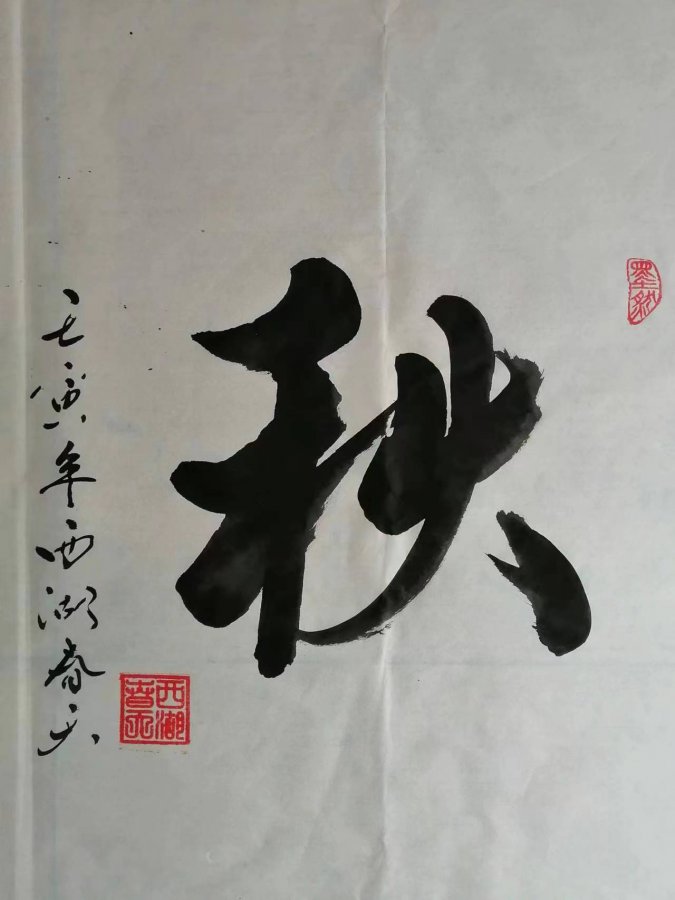 秋
壬寅年西湖春天
西湖
春天